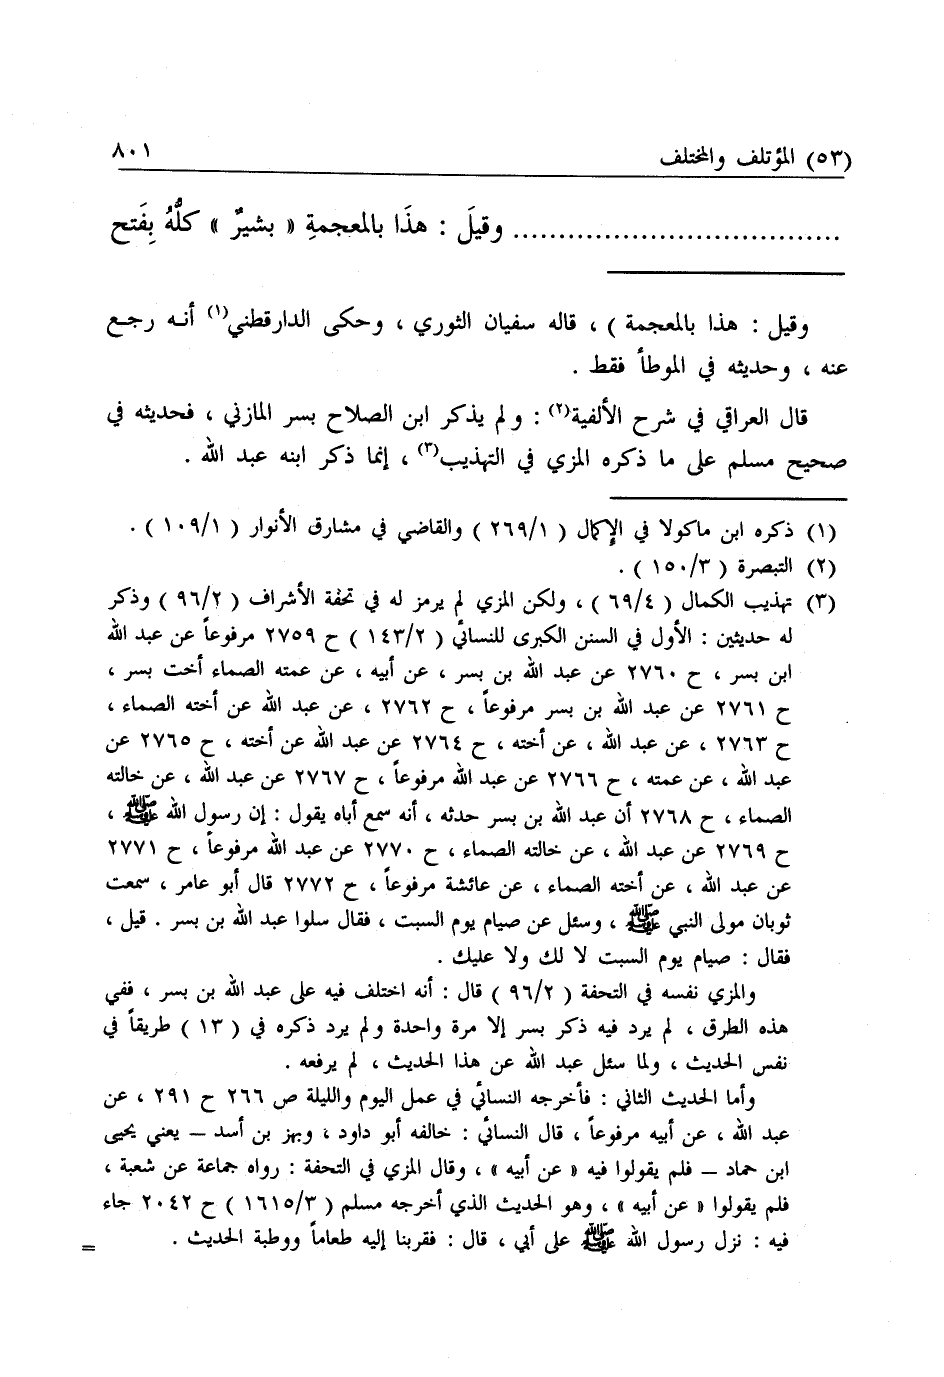 (٥٣) المؤتلف والمختلف ٨٠١
.................................... وقيلَ : هذَا بالمعجمةِ « بشيرٌ » كلُّهُ بِفَتح
وقيل : هذا بالمعجمة ) ، قاله سفيان الثوري ، وحكى الدارقطني(١) أنه رجع
عنه ، وحديثه في الموطأ فقط .
قال العراقي في شرح الألفية(٢) : ولم يذكر ابن الصلاح بسر المازني ، فحديثه في
صحيح مسلم على ما ذكره المزي في التهذيب(٣) ، إنما ذكر ابنه عبد الله .
(١) ذكره ابن ماكولا في الإكمال ( ٢٦٩/١ ) والقاضي في مشارق الأنوار ( ١٠٩/١ ) .
(٢) التبصرة ( ١٥٠/٣ ) .
(٣) تهذيب الكمال ( ٦٩/٤ ) ، ولكن المزي لم يرمز له في تحفة الأشراف ( ٩٦/٢ ) وذكر
له حديثين : الأول في السنن الكبرى للنسائي ( ١٤٣/٢ ) ح ٢٧٥٩ مرفوعاً عن عبد الله
ابن بسر ، ح ٢٧٦٠ عن عبد الله بن بسر ، عن أبيه ، عن عمته الصماء أخت بسر ،
ح ٢٧٦١ عن عبد الله بن بسر مرفوعاً ، ح ٢٧٦٢ ، عن عبد الله عن أخته الصماء ،
ح ٢٧٦٣ ، عن عبد الله ، عن أخته ، ح ٢٧٦٤ عن عبد الله عن أخته ، ح ٢٧٦٥ عن
عبد الله ، عن عمته ، ح ٢٧٦٦ عن عبد الله مرفوعاً ، ح ٢٧٦٧ عن عبد الله ، عن خالته
الصماء ، ح ٢٧٦٨ أن عبد الله بن بسر حدثه ، أنه سمع أباه يقول : إن رسول الله ﷺ ،
ح ٢٧٦٩ عن عبد الله ، عن خالته الصماء ، ح ٢٧٧٠ عن عبد الله مرفوعاً ، ح ٢٧٧١
عن عبد الله ، عن أخته الصماء ، عن عائشة مرفوعاً ، ح ٢٧٧٢ قال أبو عامر ، سمعت
ثوبان مولى النبي ﷺ ، وسئل عن صيام يوم السبت ، فقال سلوا عبد الله بن بسر . قيل ،
فقال : صيام يوم السبت لا لك ولا عليك .
والمزي نفسه في التحفة ( ٩٦/٢ ) قال : أنه اختلف فيه على عبد الله بن بسر ، ففي
هذه الطرق ، لم يرد فيه ذكر بسر إلا مرة واحدة ولم يرد ذكره في ( ١٣ ) طريقاً في
نفس الحديث ، ولما سئل عبد الله عن هذا الحديث ، لم يرفعه .
وأما الحديث الثاني : فأخرجه النسائي في عمل اليوم والليلة ص ٢٦٦ ح ٢٩١ ، عن
عبد الله ، عن أبيه مرفوعاً ، قال النسائي : خالفه أبو داود ، وبهز بن أسد – يعني يحيى
ابن حماد – فلم يقولوا فيه « عن أبيه » ، وقال المزي في التحفة : رواه جماعة عن شعبة ،
فلم يقولوا « عن أبيه » ، وهو الحديث الذي أخرجه مسلم ( ١٦١٥/٣ ) ح ٢٠٤٢ جاء
فيه : نزل رسول الله ﷺ على أبي ، قال : فقربنا إليه طعاماً ووطبة الحديث . =